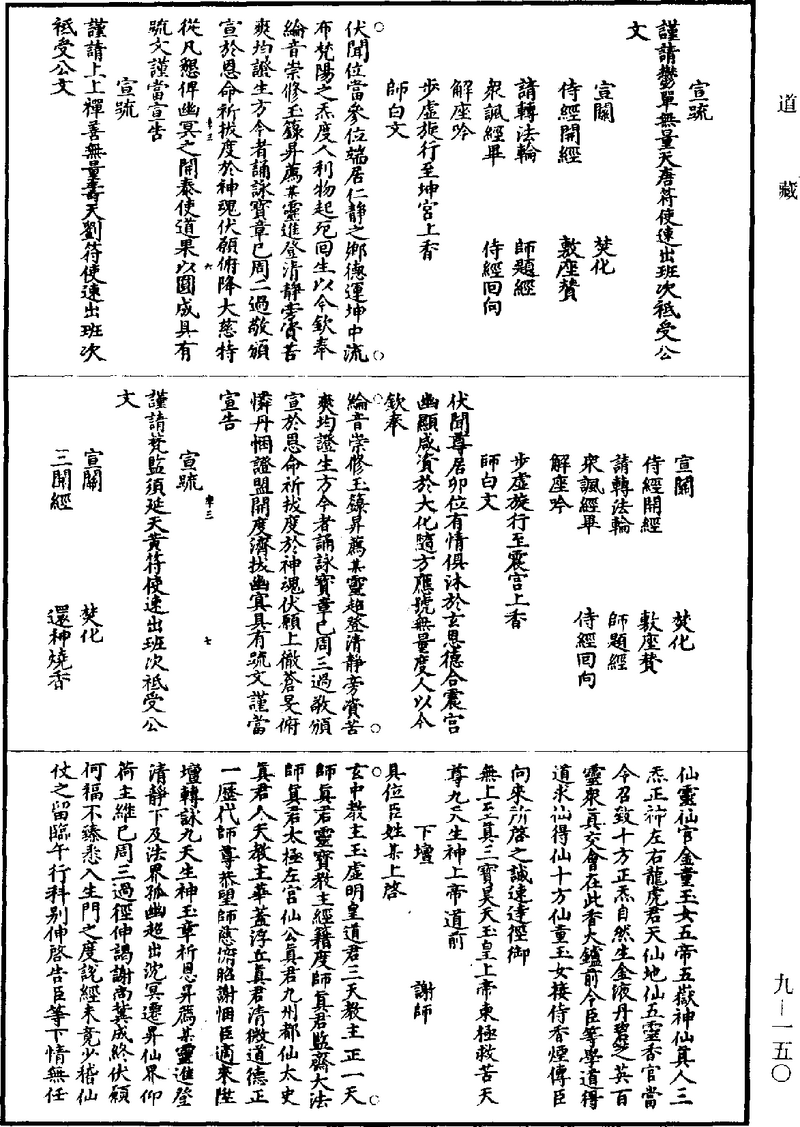 道藏
宣疏
謹請鬱單無量天唐符使速出班次祗受公
文
宣關　焚化
侍經開經　敷座贊
請轉法輪　師題經
衆諷經畢　侍經回向
解座吟
步虛旋行至坤宮上香
師白文
伏聞位當參位端居仁靜之鄉德運坤中流
布梵陽之炁度人利物起死回生以今欽奉
綸音崇修玉籙昇薦某靈進登清靜旁資苦
爽均證生方今者誦詠寶章已周二過敬頒
宣於恩命祈拔度於神魂伏願俯降大慈特
從凡懇俾幽冥之開泰使道果以圓成具有
疏文謹當宣告
宣疏
謹請上上禪善無量壽天劉符使速出班次
祗受公文
宣關　焚化
侍經開經　敷座贊
請轉法輪　師題經
衆諷經畢　侍經回向
解座吟
步虛旋行至震宮上香
師白文
伏聞尊居卯位有情俱沐於玄恩德合震宮
幽顯咸資於大化隨方應號無量度人以今
欽奉
綸音崇修玉籙昇薦某靈超登清靜旁資苦
爽均證生方今者誦詠寶章已周三過敬頒
宣於恩命祈拔度於神魂伏願上徹蒼旻俯
憐丹悃證盟開度濟拔幽冥具有疏文謹當
宣告
宣疏
謹請梵監須延天黃符使速出班次祗受公
文
宣關　焚化
三開經　還神燒香
仙靈仙官金童玉女五帝五嶽神仙真人三
炁正神左右龍虎君天仙地仙五靈香官當
令召致十方正炁自然生金液丹碧之英百
靈衆真交會在此香火鑪前今臣等學道得
道求仙得仙十方仙童玉女接侍香煙傳臣
向來所啓之誠速達徑御
無上至真三寶昊天玉皇上帝東極救苦天
尊九天生神上帝道前
下壇　謝師
具位臣姓某上啓
玄中教主玉虛明皇道君三天教主正一天
師真君靈寶教主經籍度師真君監齋大法
師真君太極左宮仙公真君九州都仙太史
真君人天教主華蓋浮丘真君清微道德正
一歷代師尊恭望師慈俯昭謝悃臣適來陞
壇轉詠九天生神玉章祈恩昇薦某靈進登
清靜下及法界孤幽超出沈冥遷昇仙界仰
荷主維已周三過徑伸謁謝尚冀成終伏願
何福不臻悉入生門之度說經未竟少稽仙
仗之留臨午行科别伸啓告臣等下情無任
九—一五〇